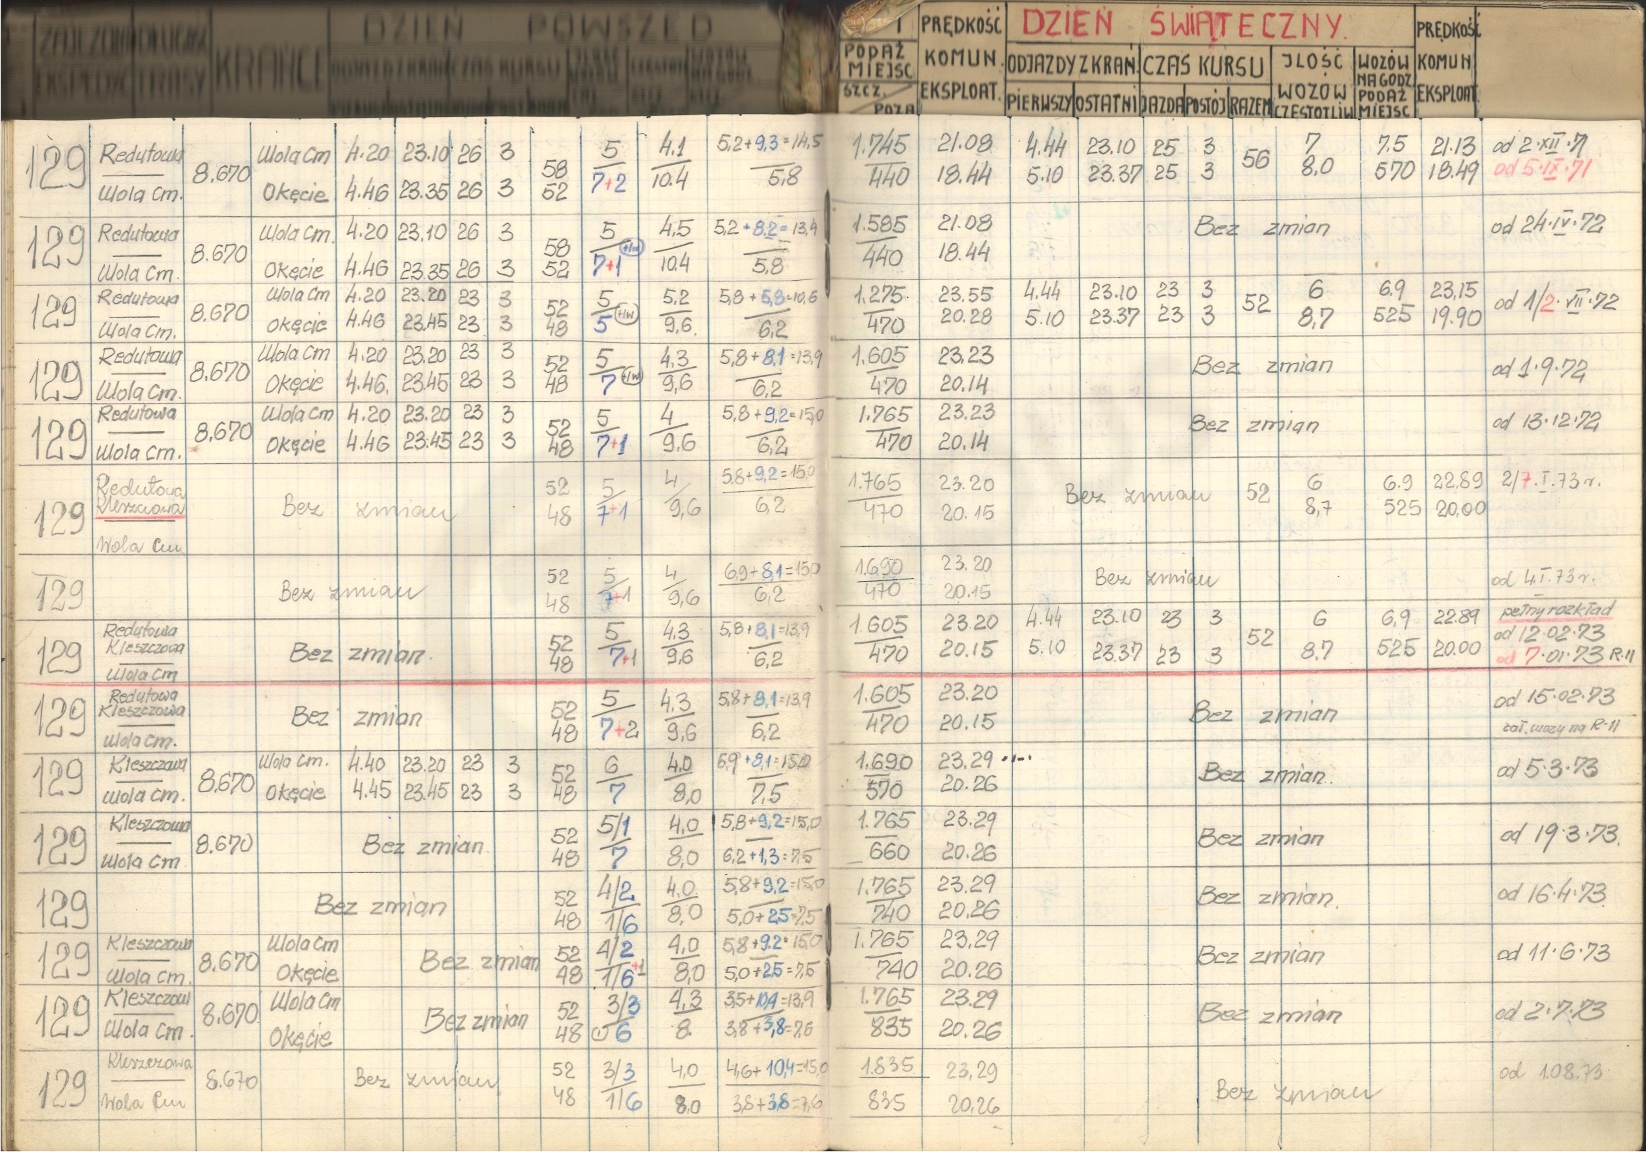 DZIEŃ POWSZED
KRAŃCE
PODAŻ MIEJSC
SZCZ. / POZA
PRĘDKOŚĆ KOMUN. EKSPLOAT.
DZIEŃ ŚWIĄTECZNY.
ODJAZDY Z KRAŃ CZAS KURSU
PIERWSZY OSTATNI JAZDA POSTÓJ RAZEM
ILOŚĆ WOZÓW CZĘSTOTLIW
WOZÓW NA GODZ PODAŻ MIEJSC
PRĘDKOŚĆ KOMUN EKSPLOAT
129 Redutowa 8.670 Wola Cm 4.20 23.10 26 3 58 5 4.1 5,2+9,3=14,5 1.745 21.08 4.44 23.10 25 3 56 7 7.5 21.13 od 2·XII·71
Wola Cm. Okęcie 4.46 23.35 26 3 52 7+2 10.4 5,8 440 18.44 5.10 23.37 25 3 8,0 570 18.49 od 5·IX·71
129 Redutowa 8.670 Wola Cm. 4.20 23.10 26 3 58 5 4,5 5,2+8,2=13,4 1.585 21.08 Bez zmian od 24·IV·72
Wola Cm. Okęcie 4.46 23.35 26 3 52 7+1 10.4 5,8 440 18.44
129 Redutowa 8.670 Wola Cm 4.20 23.20 23 3 52 5 5,2 5,8+5,8=10,6 1.275 23.55 4.44 23.10 23 3 52 6 6.9 23,15 od 1/2·VII·72
Wola Cm. Okęcie 4.46 23.45 23 3 48 5 9,6 6,2 470 20.28 5.10 23.37 23 3 8,7 525 19.90
129 Redutowa 8.670 Wola Cm 4.20 23,20 23 3 52 5 4,3 5,8+8,1=13,9 1.605 23.23 Bez zmian od 1·9·72
Wola Cm. Okęcie 4.46. 23.45 23 3 48 7 9,6 6,2 470 20.14
129 Redutowa 8,670 Wola Cm 4.20 23.20 23 3 52 5 4 5,8+9,2=15,0 1.765 23.23 Bez zmian od 13·12·72
Wola Cm. Okęcie 4.46 23.45 23 3 48 7+1 9,6 6,2 470 20.14
129 Redutowa Kleszczowa Bez zmian 52 5 4 5,8+9,2=15,0 1.765 23.20 Bez zmian 52 6 6.9 22,89 2/7.I.73 r.
Wola Cm 48 7+1 9,6 6,2 470 20.15 8,7 525 20,00
129 Bez zmian 52 5 4 6,9+8,1=15,0 1.690 23.20 Bez zmian od 4.I.73 r.
48 7+1 9,6 6,2 470 20.15
129 Redutowa Kleszczowa Bez zmian. 52 5 4,3 5,8+8,1=13,9 1.605 23.20 4.44 23.10 23 3 52 6 6,9 22.89 pełny rozkład od 12·02·73
Wola Cm 48 7+1 9,6 6,2 470 20.15 5.10 23.37 23 3 8,7 525 20.00 od 7·01·73 R-11
129 Redutowa Kleszczowa Bez zmian 52 5 4,3 5,8+8,1=13,9 1.605 23.20 Bez zmian od 15·02·73
Wola Cm. 48 7+2 9,6 6,2 470 20.15 R-11
129 Kleszczowa 8,670 Wola Cm. 4.40 23.20 23 3 52 6 4,0 6,9+8,1=15,0 1.690 23.29 Bez zmian. od 5·3·73
Wola Cm. Okęcie 4.45 23.45 23 3 48 7 8,0 7,5 570 20.26
129 Kleszczowa 8.670 Bez zmian. 52 5/1 4,0 5,8+9,2=15,0 1.765 23.29 Bez zmian od 19·3·73.
Wola Cm. 48 7 8,0 6,2+1,3=7,5 660 20.26
129 Bez zmian 52 4/2 4,0 5,8+9,2=15,0 1.765 23.29 Bez zmian. od 16·4·73.
48 1/6 8,0 5,0+2,5=7,5 740 20,26
129 Kleszczowa 8.670 Wola Cm Bez zmian 52 4/2 4,0 5,8+9,2=15,0 1.765 23.29 Bez zmian od 11·6·73
Wola Cm. Okęcie 48 1/6+1 8,0 5,0+2,5=7,5 740 20.26
129 Kleszczowa 8.670 Wola Cm Bez zmian 52 3/3 4,3 3,5+10,4=13,9 1.765 23.29 Bez zmian od 2·7·73
Wola Cm. Okęcie 48 6 8. 3,8+3,8=7,6 835 20.26
129 Kleszczowa 8.670 Bez zmian 52 3/3 4,0 4,6+10,4=15,0 1.835 23,29 Bez zmian od 1.08.73.
Wola Cm 48 1/6 8,0 3,8+3,8=7,6 835 20,26